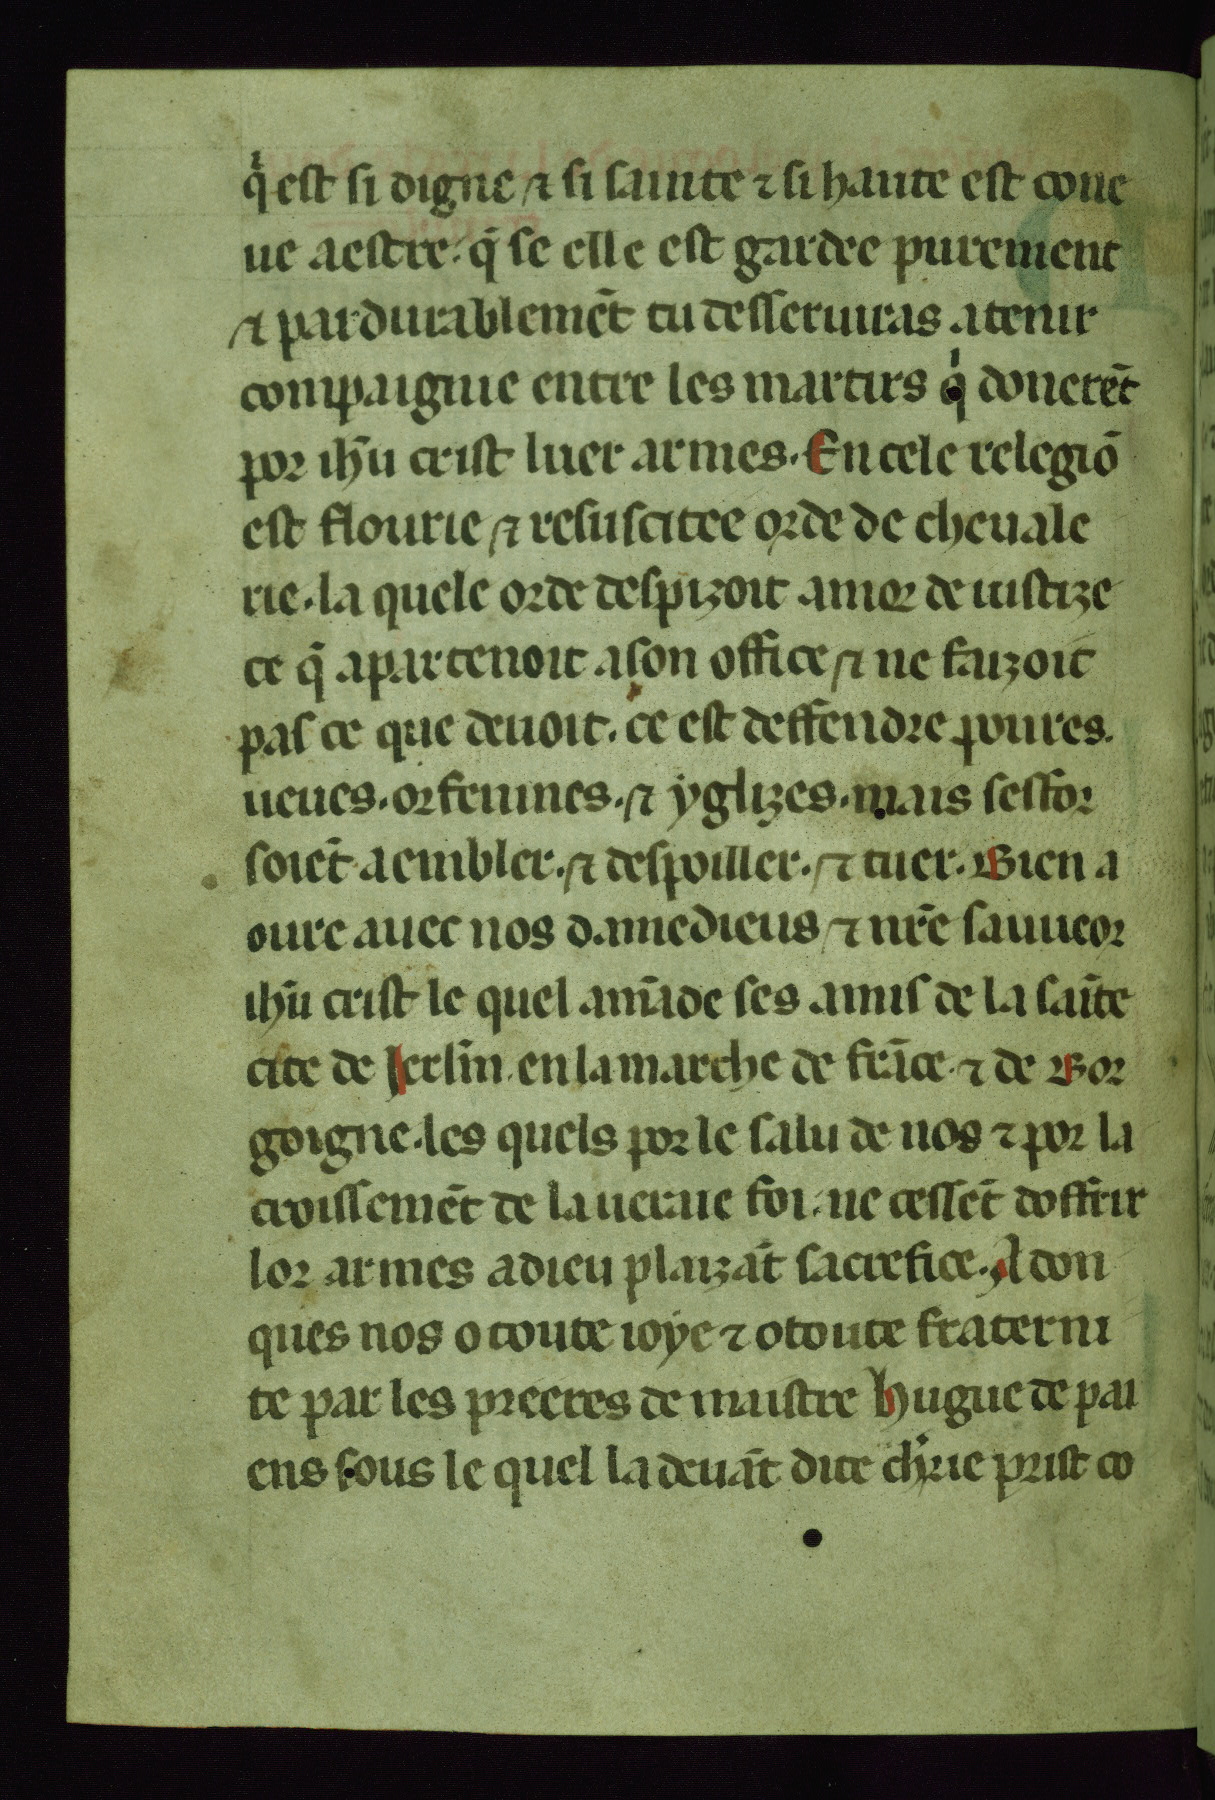 q̄ est si digne ⁊ si sainte ⁊ si haute est cone
ue a estre. q̄ se elle est gardee purement
⁊ pardurablemēt tu desseruiras a tenir
compaignie entre les martirs q̄ donerēt
por ih̄u crist luer armes. En cele relegiō
est flourie ⁊ resuscitee orde de cheuale
rie. la quele orde despizoit amor de iustize
ce q̄ apartenoit a son office ⁊ ne faizoit
pas ce que deuoit. ce est deffendre poures.
ueues. orfenines. ⁊ yglizes. mais sesfor
soiēt a embler. ⁊ despoiller. ⁊ tuer. Bien a
oure auec nos damedieus ⁊ nr̄e sauueor
ih̄u crist le quel amāde ses amis de la saīte
cite de Jerlm̄. en la marche de frāce. ⁊ de Bor
goigne. les quels por le salu de nos ⁊ por la
croissemēt de la ueraie foi. ne cessēt doffrir
lor armes a dieu plaizāt sacrefice. A don
ques nos o toute ioye ⁊ o toute fraterni
te par les preeres de maistre Hugue de pai
ens sous le quel la deuāt dite ch'rie prist co